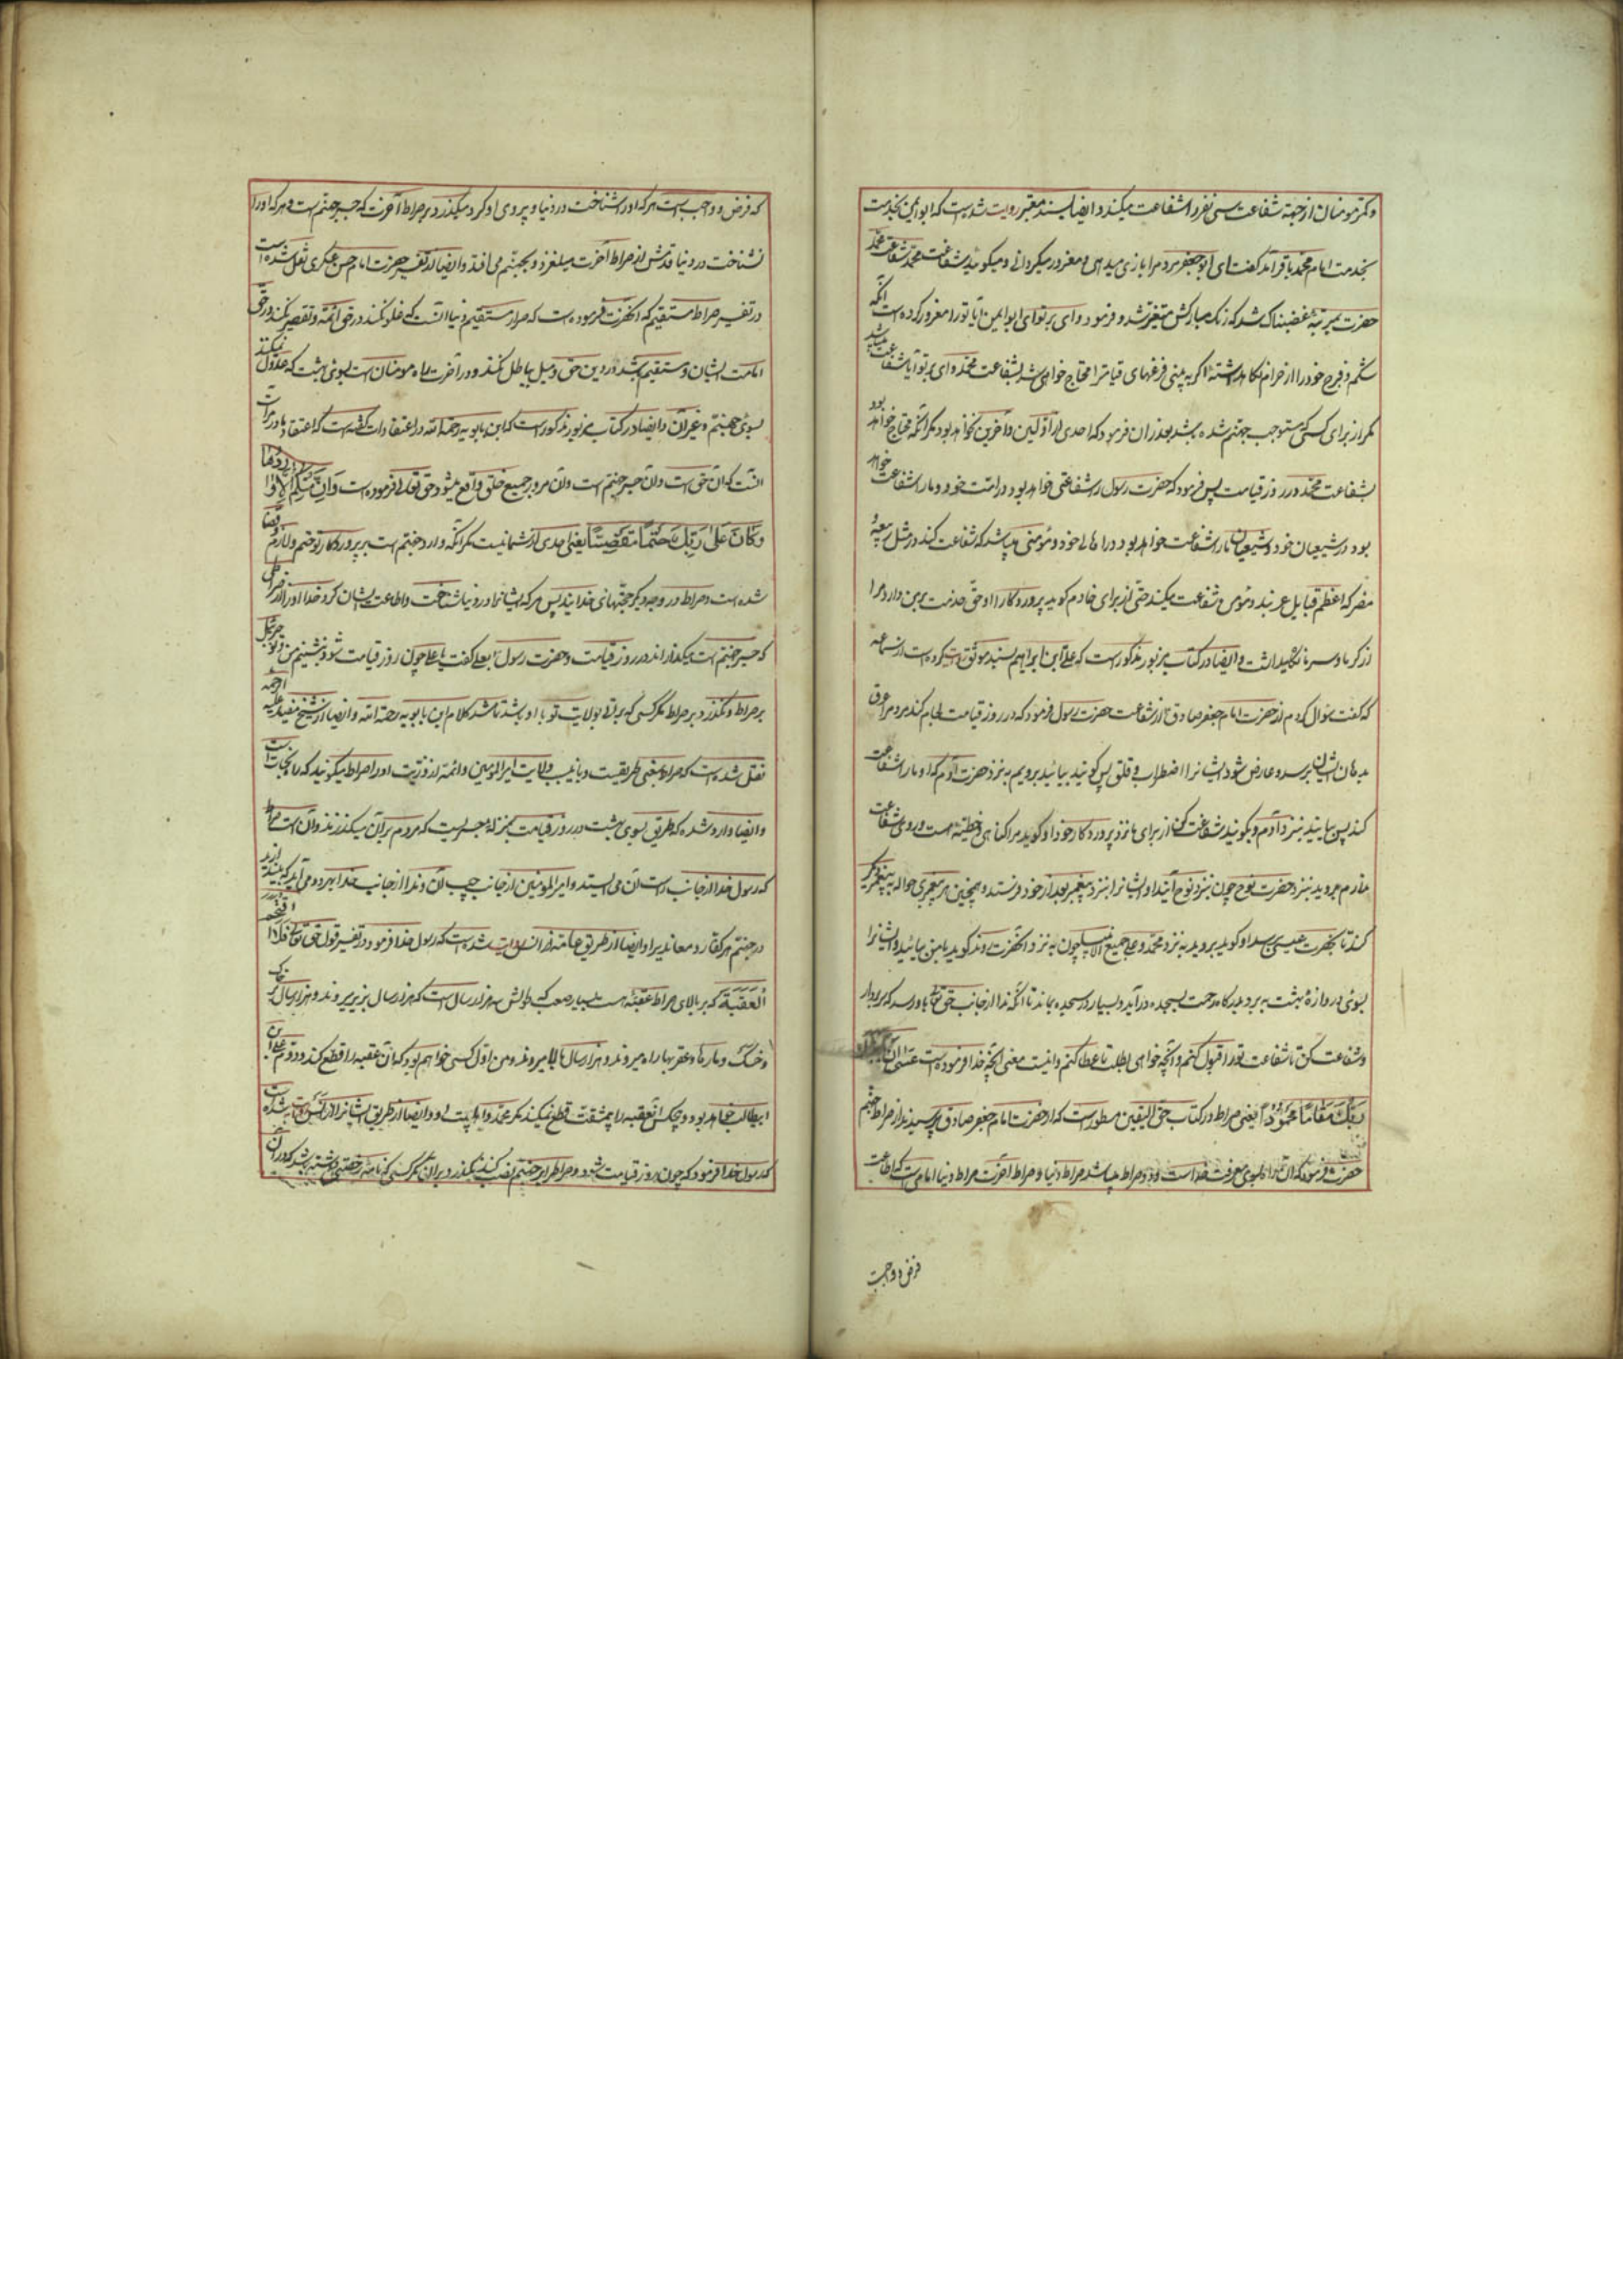 و کمتر مومنان از جهة شفاعت سی نفر را شفاعت میکند و ایضا بسند معتبر روایت شده است که ابو ایمن بخدمت
بخدمت امام محمد باقر آمد گفت ای ابو جعفر مردم را بازی میدهی و مغرور میگردانی و میکوئید شفاعت محمد شفاعت محمد
حضرت بمرتبهٔ غضبناک شد که رنک مبارکش متغیر شد و فرمود وای بر تو ای ابو ایمن آیا تو را مغرور کرده است آنکه
شکم و فرج خود را از حرام نکاه داشتهٔ اکر به بینی فزعهای قیامت را محتاج خواهی شد بشفاعت محمد وای بر تو آیا شفاعت میباشد
مکر از برای کسی که مستوجب جهنم شده باشد بعد از آن فرمود که احدی از اولین و آخرین نخواهد بود مکر آنکه محتاج خواهد بود
بشفاعت محمد در روز قیامت پس فرمود که حضرت رسول را شفاعتی خواهد بود در امت خود و ما را شفاعت خواهد
بود در شیعیان خود و شیعیان ما را شفاعت خواهد بود در اهالی خود و مؤمنی میباشد که شفاعت کند در مثل ربیعه و
مضر که اعظم قبایل عربند و مؤمن شفاعت میکند حتی از برای خادم کوید پروردکارا او حق خدمت بر من دارد مرا
از کرما و سرما نکاه میداشت و ایضا در کتاب مزبور مذکور است که علی ابن ابراهیم بسند موثق روایت کرده است از سماعه
که کفت سؤال کردم از حضرت امام جعفر صادق از شفاعت حضرت رسول فرمود که در روز قیامت لجام کند مردم را عرق
بدهان ایشان برسد و عارض شود ایشانرا اضطراب و قلق پس کویند بیائید برویم به نزد حضرت آدم که او ما را شفاعت
کند پس بیایند بنزد آدم و بکویند شفاعت کن از برای ما نزد پروردکار خود او کوید مرا کناهی و خطیئهٔ هست و روی شفاعت
ندارم بروید بنزد حضرت نوح چون بنزد نوح آیند او ایشانرا بنزد پیغمبر بعد از خود فرستد و همچنین هر پیغمبری حواله به پیغمبر دیکر
کند تا بحضرت عیسی برسد او کوید بروید به نزد محمد و علی جمیع الانبیا پس چون به نزد آنحضرت روند کوید با من بیائید و ایشانرا
بسوی دروازهٔ بهشت به برد و بدرکاه رحمت بسجده در آید و بسیار در سجده بماند تا آنکه ندا از جانب حق تعالی باو رسد که سر بردار
و شفاعت کن تا شفاعت تو را قبول کنم و آنچه خواهی بطلب تا عطا کنم و اینست معنی آنچه خدا فرموده است عَسٰی اَن یَبعَثَکَ
رَبُّکَ مَقَامًا مَحمُودًا یعنی صراط در کتاب حق الیقین مسطور است که از حضرت امام جعفر صادق پرسیدند از صراط جهنم
حضرت فرمود که آن راه بسوی معرفت خداست و دو صراط میباشد صراط دنیا و صراط آخرت صراط دنیا امام است که اطاعت
فرض و واجب
که فرض و واجب است هر که او را شناخت در دنیا و پیروی او کرد میکذرد بر صراط آخرت که جسر جهنم است و هر که او را
نشناخت در دنیا قدمش از صراط آخرت میلغزد و بجهنم می افتد و ایضا از تفسیر حضرت امام حسن عسکری نقل شده است
در تفسیر صراط مستقیم که آنحضرت فرموده است که صراط مستقیم دنیا آنست که غلو نکند در حق ائمه و تقصیر نکند در حق
امامت ایشان و مستقیم باشد در دین حق و میل بباطل نکند و در آخرت راه مومنان است بسوی بهشت که عدول نمیکند
بسوی جهنم و غیر آن و ایضا در کتاب مزبور مذکور است که ابن بابویه رحمه الله در اعتقادات کفته است که اعتقاد ما در صراط
آنست که آن حق است و آن جسر جهنم است و آن مرور جمیع خلق واقع میشود حق تعالی فرموده است وَاِن مِنکُم اِلّا وَارِدُهَا
وَکَانَ عَلٰی رَبِّکَ حَتمًا مَقضِیًّا یعنی احدی از شما نیست مکر آنکه وارد جهنم است بر پروردکار تو ختم و لازم و قضا
شده است و صراط در وجه دیکر حجتهای خدایند پس هر که ایشانرا در دنیا شناخت و اطاعت ایشان کرد خدا او را از صراطی
که جسر جهنم است میکذراند در روز قیامت و حضرت رسول بعلی کفت یا علی چون روز قیامت شود بنشینم من و تو و جبرئیل
بر صراط و نکذرد بر صراط مکر کسی که براتی بولایت تو با او باشد تا شد کلام ابن بابویه رحمة الله و ایضا از شیخ مفید علیه الرحمه
نقل شده است که صراط بمعنی طریقست و باین سبب ولایت امیرالمومنین و ائمه از ذریت او را صراط میکویند که راه نجات است
و ایضا وارد شده که طریق بسوی بهشت در روز قیامت بمنزله جسریست که مردم بر آن میکذرند و آن است صراط
که رسول خدا از جانب راست آن می ایستد و امیرالمومنین از جانب چپ آن و ندا از جانب خدا بهر دو می آید که بیندازید
در جهنم هر کفار و معاند را و ایضا از طریق عامه از انس روایت شده است که رسول خدا فرمود در تفسیر قول حق تعالی فَلَا اقتَحَمَ
العَقَبَةَ که بر بالای صراط عقبهٔ هست بسیار صعب که طولش سه هزار سال است که هزار سال بزیر میروند و هزار سال بر خاک
و خسک و مارها و عقربها راه میروند و هزار سال بالا میروند و من اول کسی خواهم بود که آن عقبه را قطع کند و دوم علی ابن
ابیطالب خواهد بود و هیچکس آن عقبه را بیمشقت قطع نمیکند مکر محمد و اهل بیت او و ایضا از طریق ایشان از انس روایت شده است
که رسول خدا فرمود که چون روز قیامت شود و صراط را بر جهنم نصب کنند نکذرد بر آن مکر کسی که نامهٔ رخصتی داشته باشد که در آن